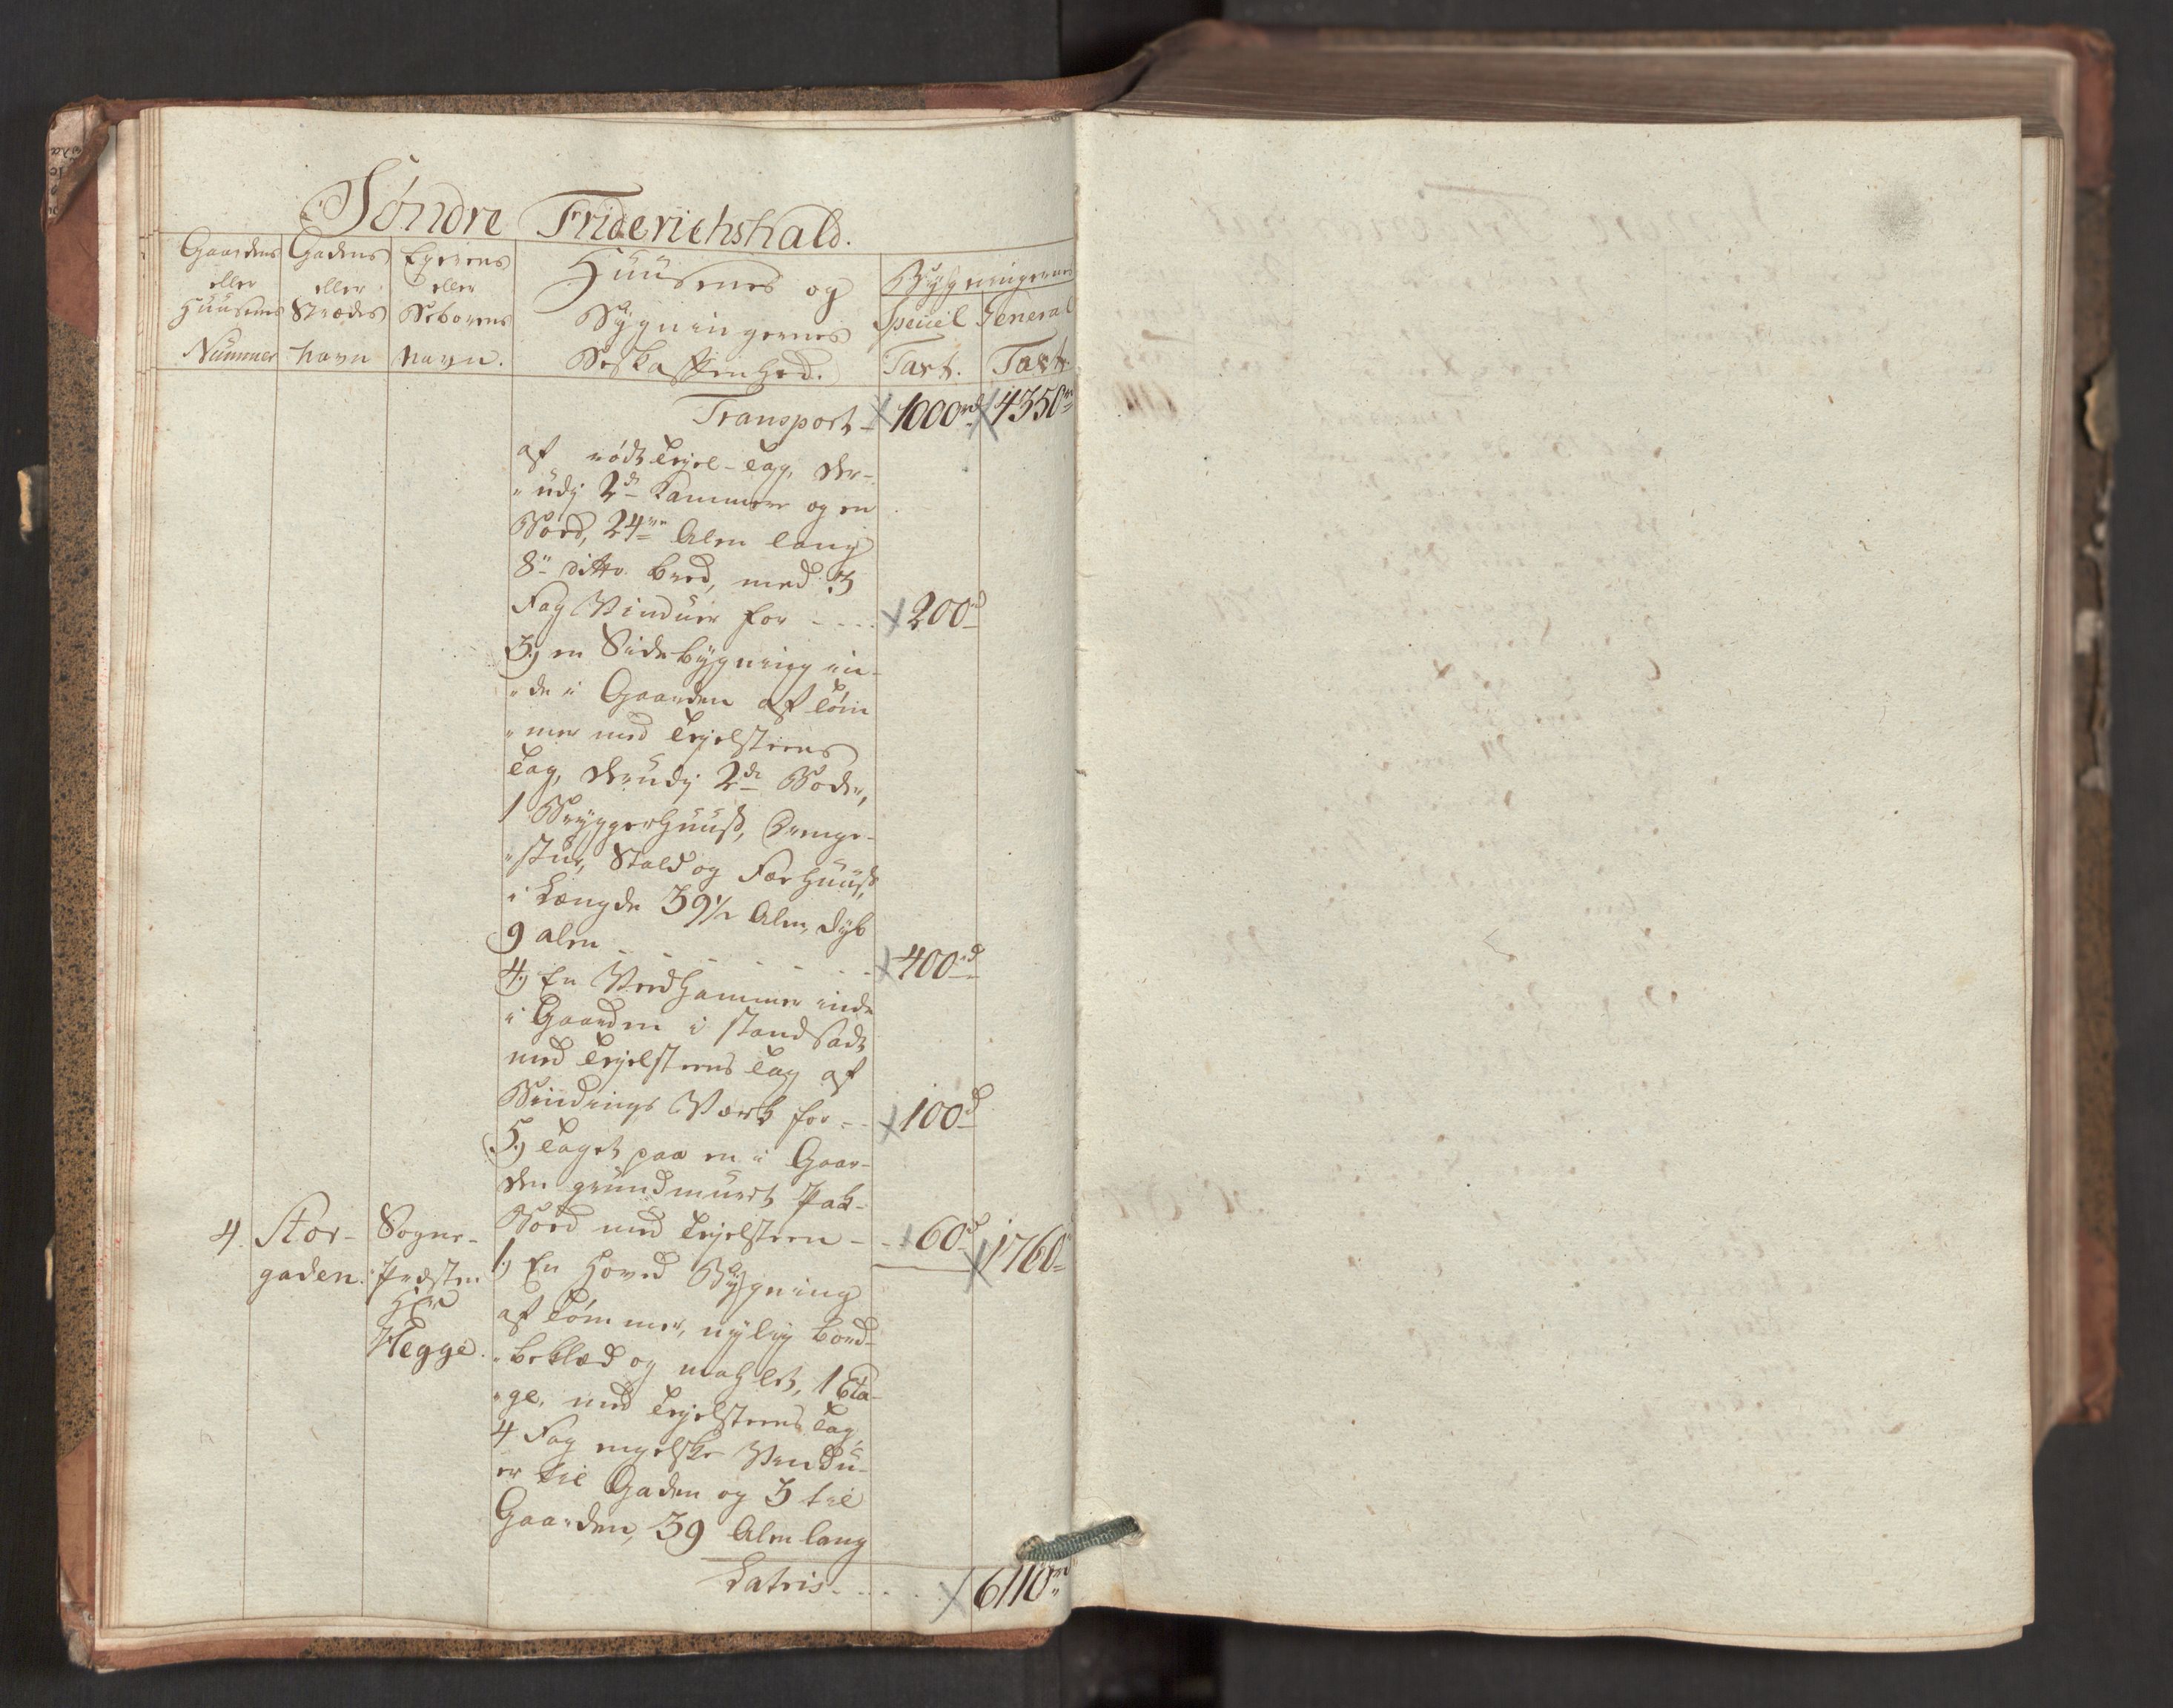 Søndre Friderichshald.
Gaardens eller Huusenes Nummer
Gadens eller Strædes Navn
Eyerens eller Beboerens Navn.
Huusenes og Bygningernes Beskaffenhed.
Bygningernes
Speciel Taxt.
General Taxt.
Transport - 1000rd 4350rd
af rødt Teyel-Tag, der-
"udj 2de Kammere og en
Boed, 24ve Alen lang
8te ditto bred, med 3
Fag Vinduer for - - - - 200rd
3.) en Sidebygning in-
"de i Gaarden af Tøm
"mer med Teyelsteens
Tag, derudj 2de Boder,
1 Bryggerhuus, Drenge-
"stue, Stald og Færhuus,
i Længde 39 1/2 Alen, dyb
9 alen - - - - - - 400rd
4.) En Vedhammer inde
i Gaarden i stand sadt
med Teyelsteens Tag af
Bindings Værk for - - 100rd
5.) Taget paa en i Gaar-
den grundmuret Pak-
Boed med Teyelsteen - - 60rd 1760rd
4. Stor-
gaden.
Sogne-
Præsten
Hr
Hegge.
1.) En Hoved Bygning
af Tømmer, nylig bord-
"beklæd og mahlet, 1 Eta-
"ge, med Teyelsteens Tag,
4 Fag engelske Vindu-
er til Gaden og 3 til
Gaarden, 39 Alen lang
Latris - - - - 6110rd